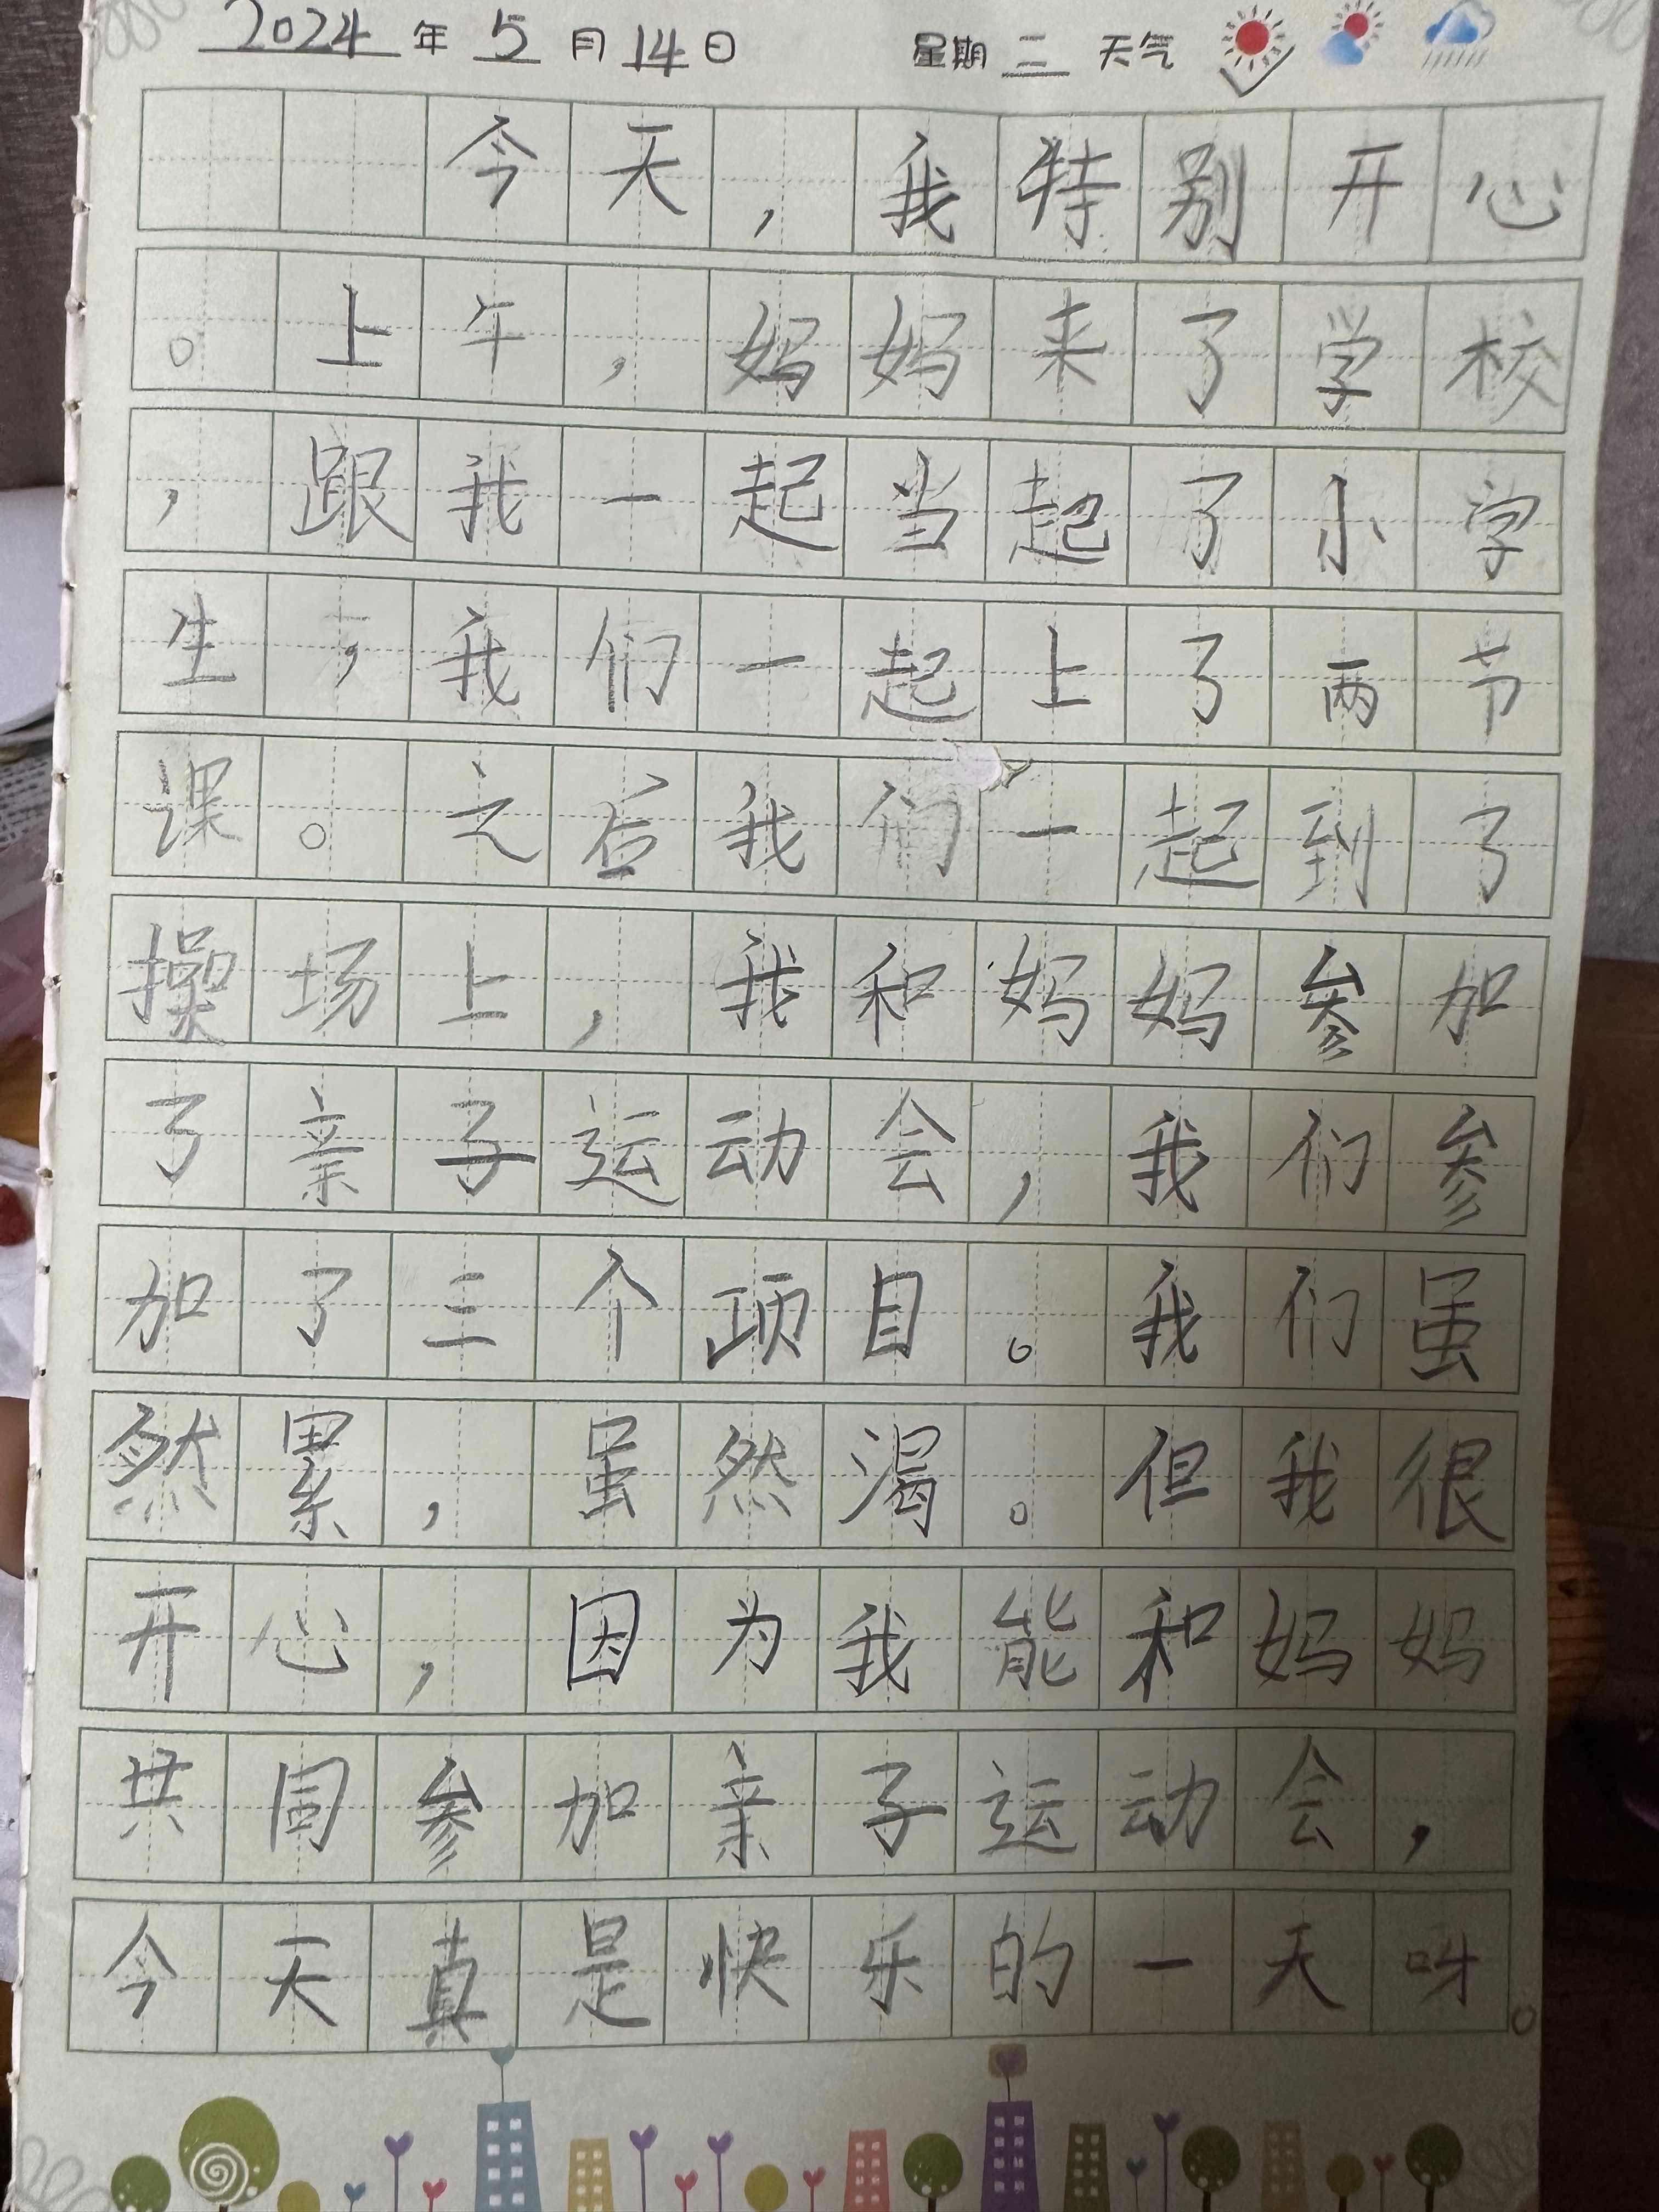 2024年5月14日 星期二 天气
今天，我特别开心
。上午，妈妈来了学校
，跟我一起当起了小学
生，我们一起上了两节
课。之后我们一起到了
操场上，我和妈妈参加
了亲子运动会，我们参
加了三个项目。我们虽
然累，虽然渴。但我很
开心，因为我能和妈妈
共同参加亲子运动会，
今天真是快乐的一天呀。